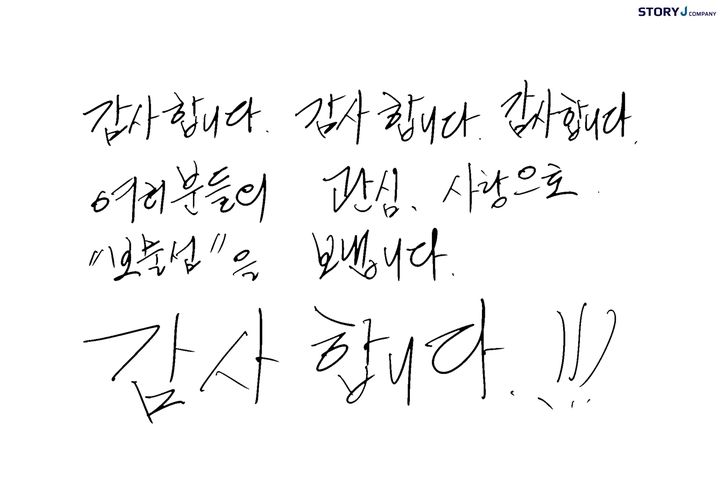 STORY J COMPANY
감사합니다. 감사합니다. 감사합니다.
여러분들의 관심, 사랑으로
"보물섬"을 보냅니다.
감사합니다.!!!